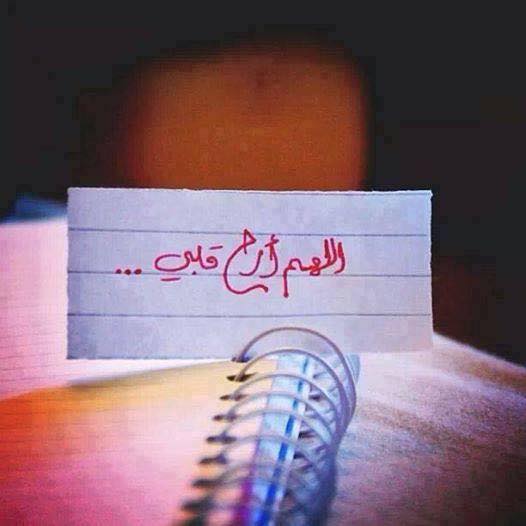 اللهم أرح قلبي ...